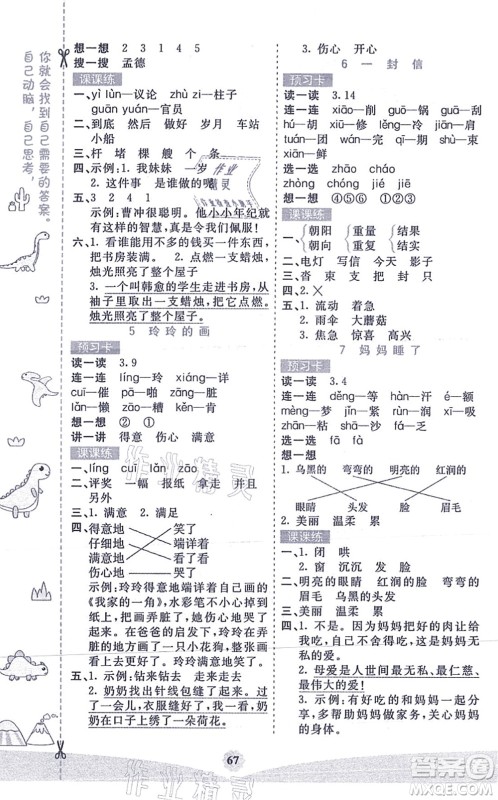 你就会找到自己需要的答案。
自己动脑，自己思考，
想一想 2 3 1 4 5
搜一搜 孟德
课课练
一、yì lùn—议论 zhù zi—柱子
guān yuán—官员
二、到底 然后 做好 岁月 车站
小船
三、杆 堵 棵 艘 个 条
四、示例：1. 我妹妹 一岁
2. 这件事 是谁做的呢
五、3 2 4 1
示例：曹冲很聪明。他小小年纪就有
这样的智慧，真令我们佩服！
六、1. 看谁能用不多的钱买一件东西，
把书房装满。 2. 点燃了蜡烛，
烛光照亮了整个屋子
3. 一个叫韩愈的学生走进书房，从
袖子里取出一支蜡烛，把它点燃。
烛光照亮了整个屋子
5 玲玲的画
预习卡
读一读 3.9
连一连 líng—玲 xiáng—详
cuī—催 pā—啪 tān—摊
lǎn—懒 zāo—糟 bào—报
想一想 ② ①
讲一讲 得意 伤心 满意
课课练
一、líng cuī lǎn zāo
二、评奖 一幅 报纸 拿走 并且
另外
三、1. 满意 2. 满足
四、得意地 笑了
仔细地 端详着
满意地 看了看
伤心地 哭了
示例：玲玲得意地端详着自己画的
《我家的一角》，水彩笔叭的掉到纸
上，把画弄脏了。玲玲伤心地哭了。
在爸爸的启发下，玲玲在弄脏的地
方画了一只小花狗。玲玲仔细地看
了看，满意地笑了。
五、1. 示例：钻来钻去 走来走去
2. 奶奶找出针线包缝了起来。过
了一会儿，衣服缝好了，我看到奶
奶在口子上绣了一朵荷花。
3. 伤心 开心
6 一封信
预习卡
读一读 3.14
连一连 xiāo—削 guō—锅
hú—胡 xiū—修 guā—刮
kùn—困 wán—完 qī—期
xiān—鲜
选一选 zhāo cháo
zhòng chóng jié jiē
想一想 ④⑤ ①②③⑥
课课练
一、朝阳 重量 结果
朝向 重复 结实
二、电灯 写信 今天 影子
三、沓 束 支 把 封 只
四、2. ×
五、1. 流动 着急
2. 雨伞 大蘑菇
3. 焦急 惊喜 高兴
7 妈妈睡了
预习卡
读一读 3.4
连一连 děng—等 xī—吸
mèng—梦 pín—拼 hàn—汗 é—额
想一想 fā fà
选一选
1. 乌黑的 弯弯的 明亮的 红润的
眼睛 头发 脸 眉毛
2. 美丽 温柔 累
课课练
一、1. 闭 哄
2. 窗 沉沉 发 脸
二、明亮的眼睛 红润的脸 弯弯的
眉毛 乌黑的头发
三、美丽 温柔 累
四、1. 示例：不是。因为妈妈把好的留给
我吃，自己舍不得吃，这是妈妈对
我的爱。
2. 母爱是人世间最无私、最仁慈、
最伟大的爱！
3. 示例：有好吃的和妈妈一起分
享，帮助妈妈做家务，关心妈妈的
身体。
67
作业精灵
答案圈
MXQE.COM